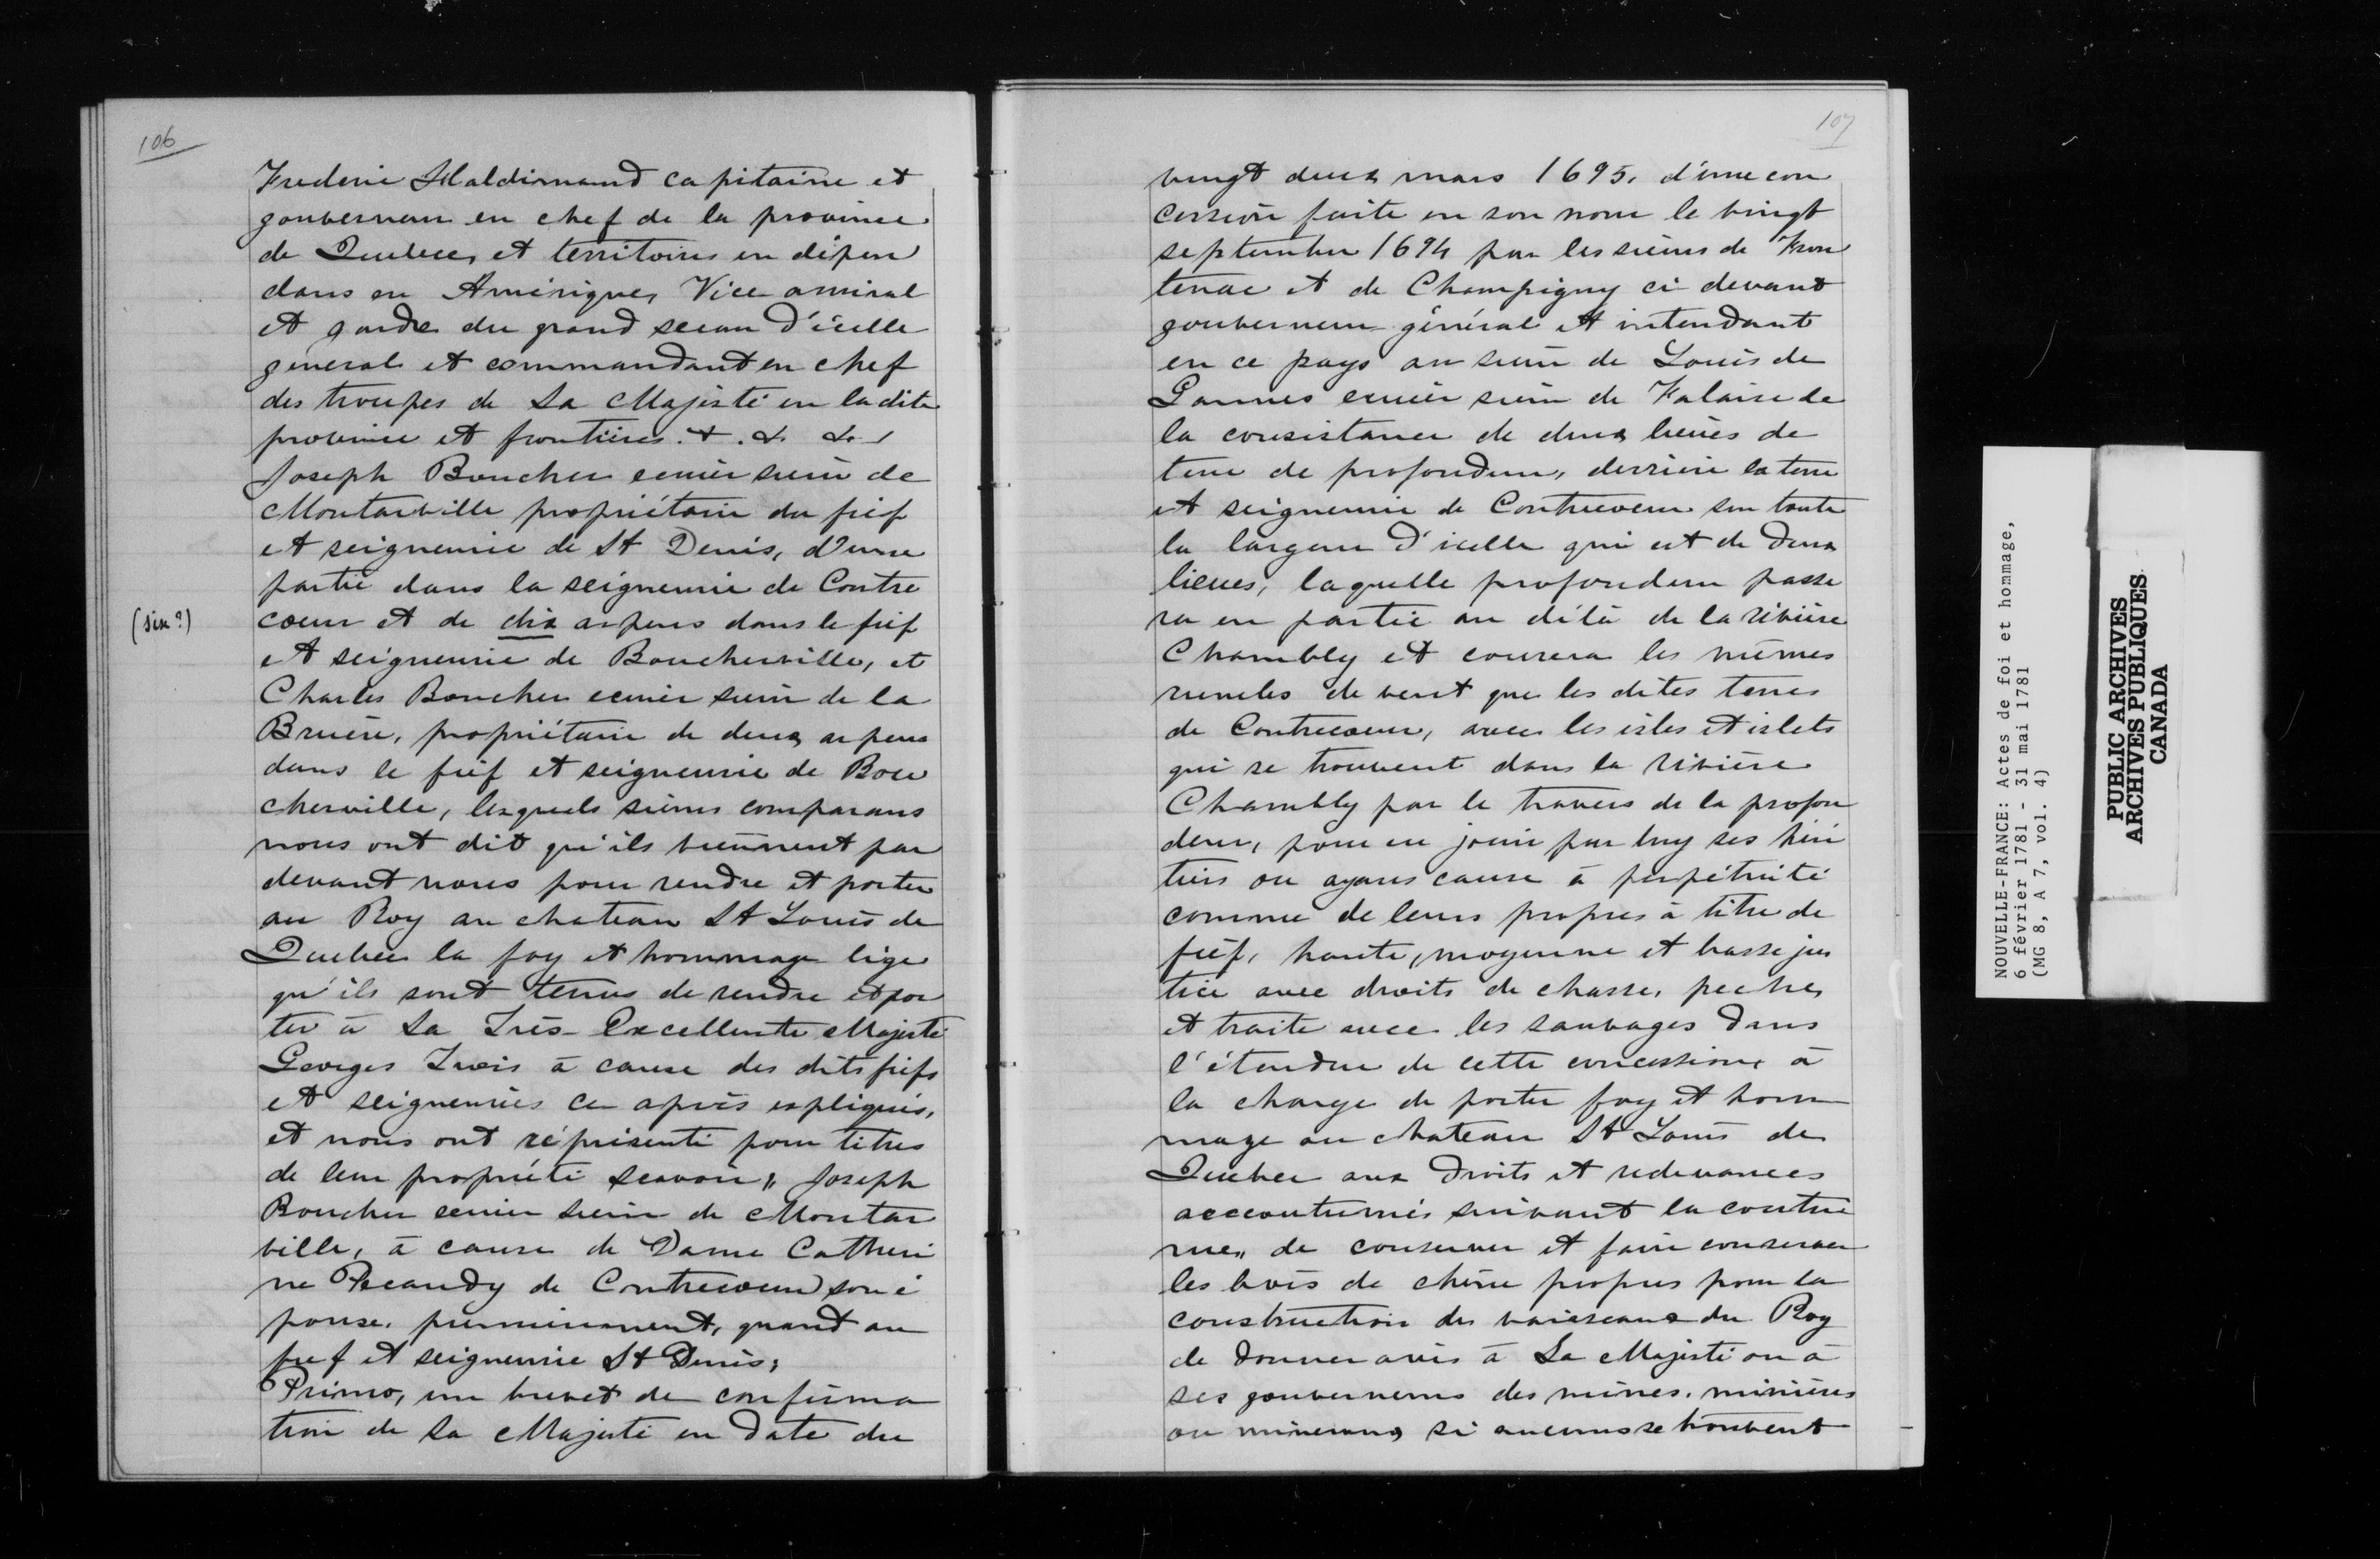 106
Frederic Haldimand capitaine et
gouverneur en chef de la province
de Quebec, et territoires en dépen
dans en Amérique, Vice amiral
et garde du grand sceau d'icelle
general et commandant en chef
des troupes de Sa Majesté en la dite
province et frontières. &. &. &.
Joseph Boucher ecuier sieur de
Montarville propriétaire du fief
et seigneurie de St Denis, d'une
partie dans la seigneurie de Contre
cœur et de dix arpens dans le fief
(six?)
et seigneurie de Boucherville, et
Charles Boucher ecuier sieur de la
Bruère, propriétaire de deux arpens
dans le fief et seigneurie de Bou
cherville, lesquels sieurs comparans
nous ont dit qu'ils viennent par
devant nous pour rendre et porter
au Roy au chateau St Louis de
Quebec la foy et hommage lige
qu'ils sont tenus de rendre et por
ter à Sa Très Excellente Majesté
Georges Trois à cause des dits fiefs
et seigneuries ci après expliqués,
et nous ont réprésenté pour titres
de leur propriété scavoir, Joseph
Boucher ecuier sieur de Montar
ville, à cause de Dame Catheri
ne Pecaudy de Contrecœur son é
pouse, premierement, quant au
fief et seigneurie St Denis;
Primo, un brevet de confirma
tion de Sa Majesté en date du
107
vingt deux mars 1695, d'une con
cession faite en son nom le vingt
septembre 1694 par les sieurs de Fron
tenac et de Champigny ci devant
gouverneur général et intendant
en ce pays au sieur de Louis de
Gannes ecuier sieur de Falaise de
la consistance de deux lieues de
terre de profondeur, derrière la terre
et seigneurie de Contrecœur sur toute
la largeur d'icelle qui est de deux
lieues, laquelle profondeur passe
ra en partie au délà de la rivière
Chambly et courera les mêmes
rumbs de vent que les dites terres
de Contrecœur, avec les isles et islets
qui se trouvent dans la rivière
Chambly par le travers de la profon
deur, pour en jouir par luy ses héri
tiers ou ayans cause à perpétuité
comme de leurs propres à titre de
fief, haute, moyenne et basse jus
tice avec droits de chasse, peche,
et traite avec les sauvages dans
l'étendue de cette concession, à
la charge de porter foy et hom
mage au chateau St Louis de
Quebec aux droits et redevances
accoutumés suivant la coutu
me, de conserver et faire conserver
les bois de chêne propres pour la
construction des vaisseaux du Roy
de donner avis à Sa Majesté ou à
ses gouverneurs des mines, minières
ou mineraux si aucuns se trouvent
NOUVELLE-FRANCE: Actes de foi et hommage,
6 février 1781 - 31 mai 1781
(MG 8, A 7, vol. 4)
PUBLIC ARCHIVES
ARCHIVES PUBLIQUES
CANADA